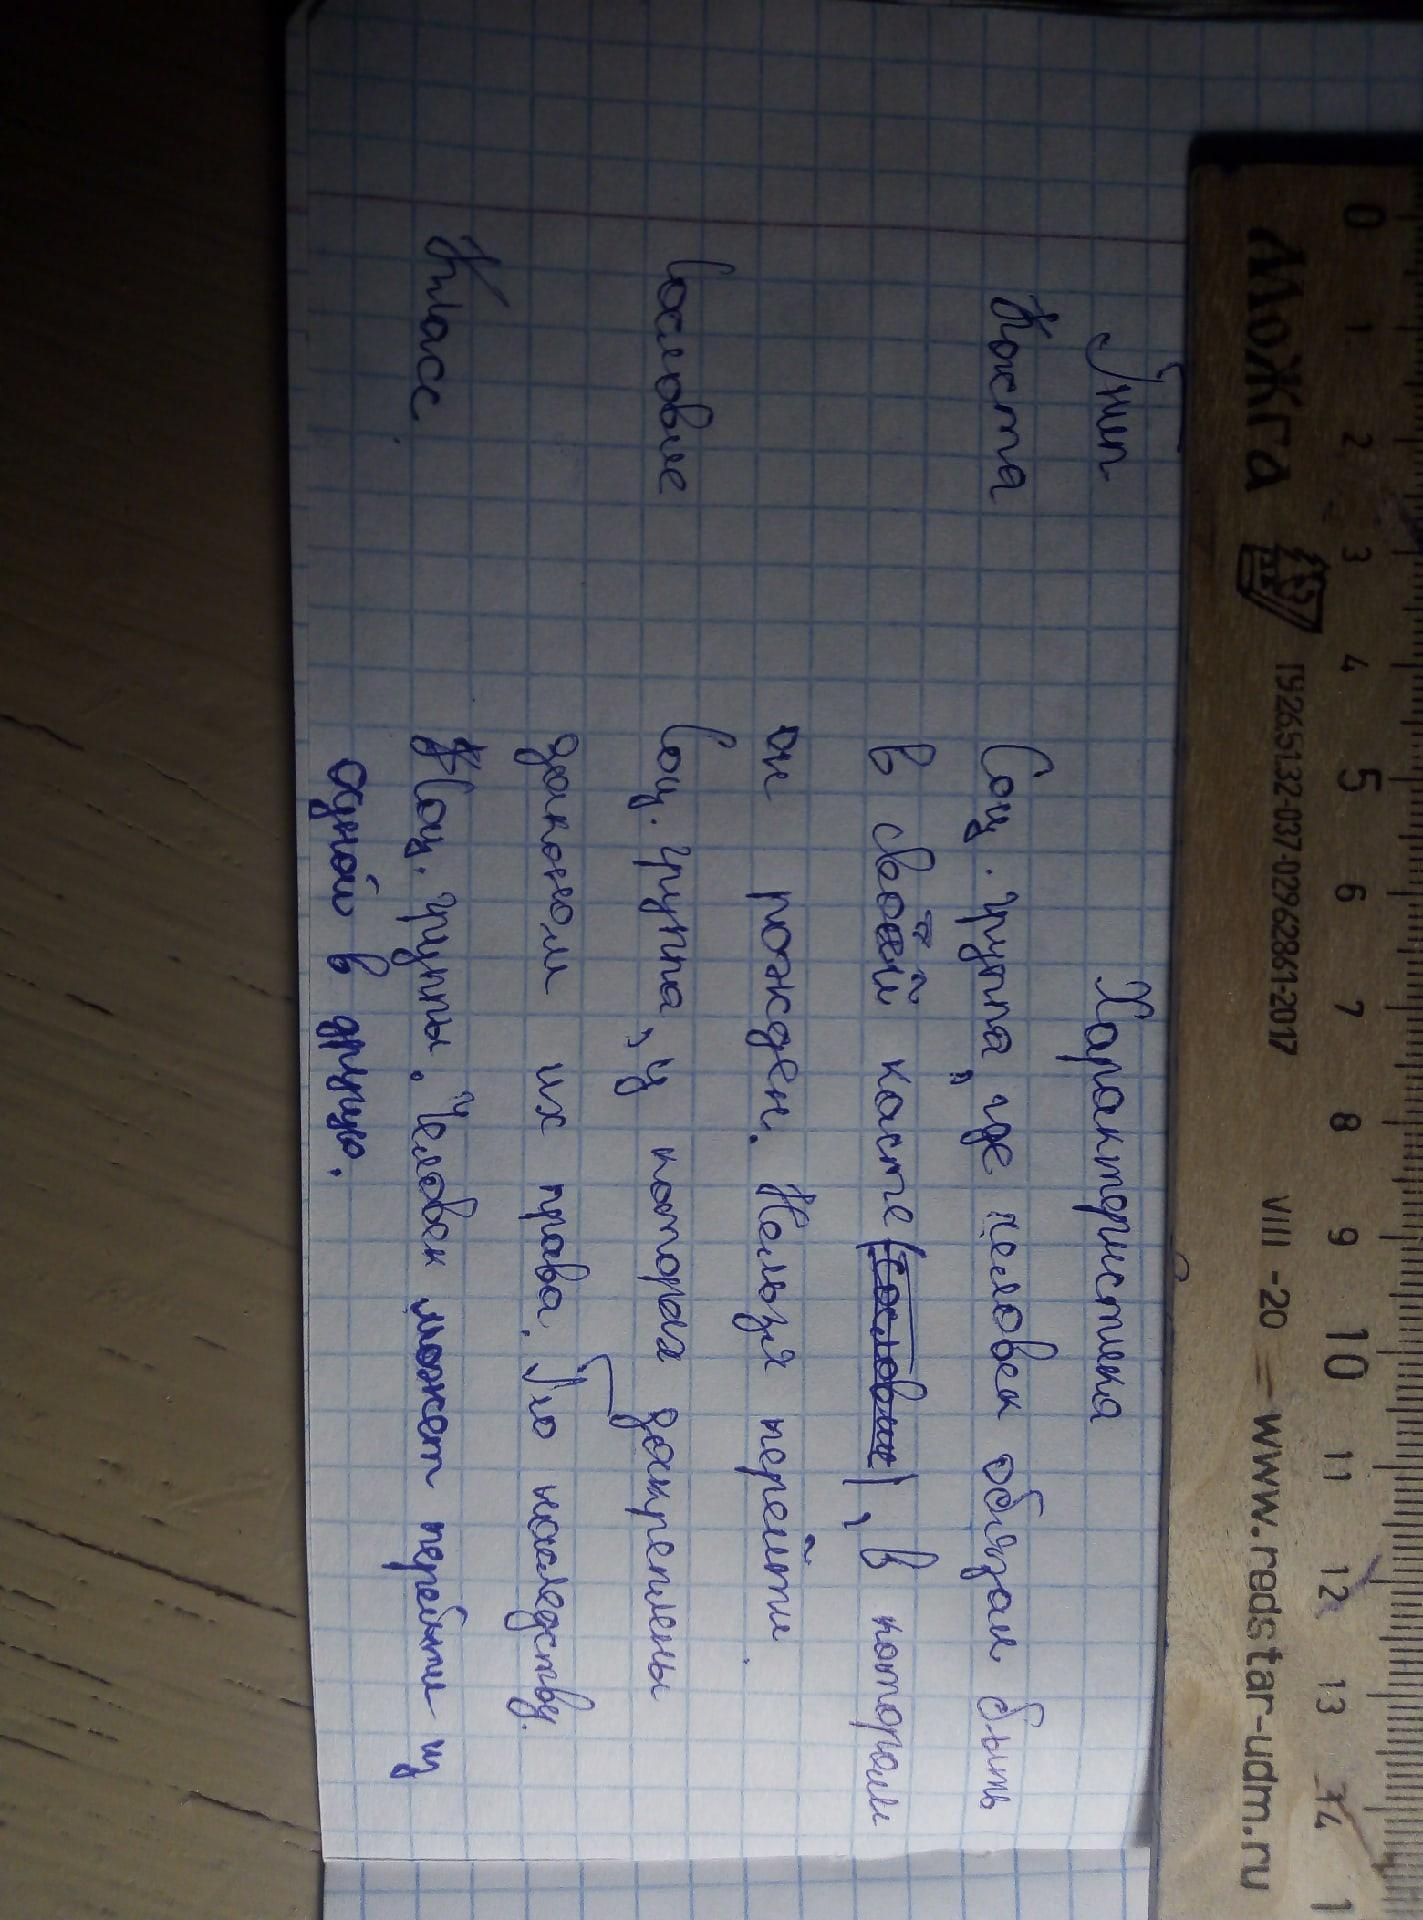 0 1 2 3 4 5 6 7 8 9 10 11 12 13 14 1
МОЖГА Г92651.32-037-02962861-2017 VIII -20 www.redstar-udm.ru
Тип Характеристика
Каста Соц. группа, где человек обязан быть
в своей касте, в котором
он рожден. Нельзя перейти.
Сословие Соц. группа, у которая закреплены
законом их права. По наследству.
Класс. Соц. группы. Человек может перейти из
одной в другую.